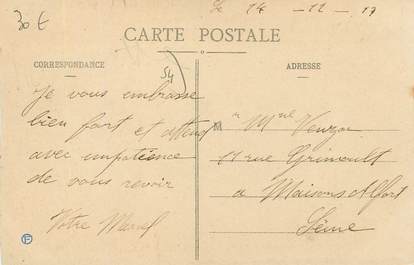 30 €
Le 14 - 12 - 17
CARTE POSTALE
CORRESPONDANCE
ADRESSE
54
Je vous embrasse
bien fort et attend
avec impatience
de vous revoir
Votre Marcel
a Mme Veuzon
17 rue Grimoult
a Maisons Alfort
Seine